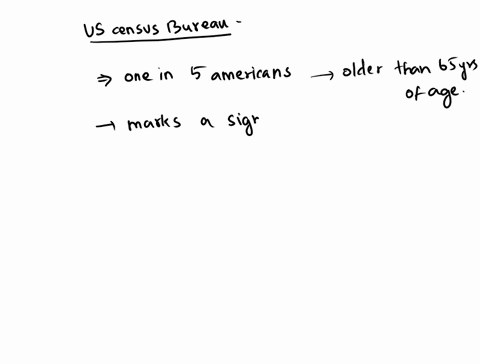 US census Bureau -
⇒ one in 5 americans → older than 65 yrs
of age.
→ marks a sigr